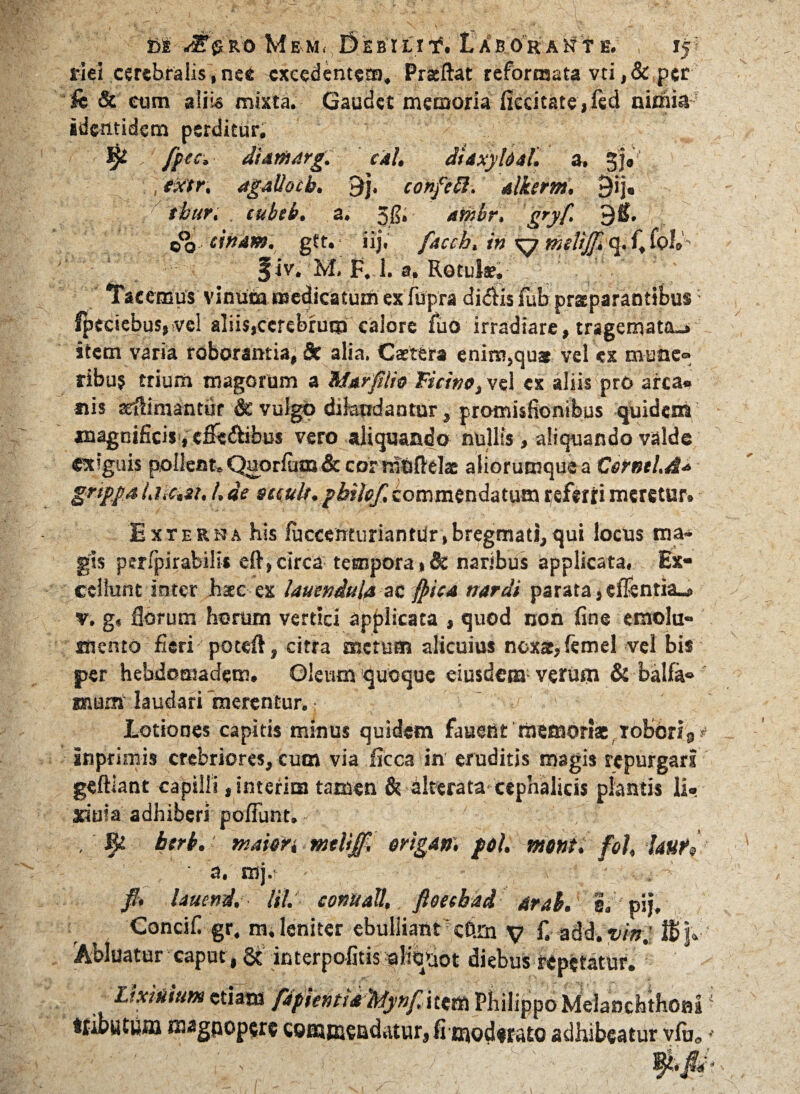 DE ÆGRO MEM. DEBILIT. LABORANTE. 15
riei cerebralis, nec excedentem. Præſtat reformata vti, & per
ſe & cum aliis mixta. Gaudet memoria ſiccitate, ſed nimia
identidem perditur.
℞ ſpec. diamarg. cal. diaxyloal. a. ʒj.
extr. agalloch. ℈j. confect. alkerm. ℈ij.
thur. cubeb. a. ʒß. ambr. gryſ. ℈ß.
cinam. gtt. iij. ſacch. in meliſſ. q. ſ. ſol.
℥iv. M. F. l. a. Rotulæ.
Tacemus vinum medicatum ex ſupra dictis ſub præparantibus
ſpeciebus, vel aliis, cerebrum calore ſuo irradiare, tragemata
item varia roborantia, & alia. Cætera enim, quæ vel ex mune-
ribus trium magorum a Marſilio Ficino, vel ex aliis pro arca-
nis æſtimantur & vulgo dilaudantur, promisſionibus quidem
magnificis, effectibus vero aliquando nullis, aliquando valde
exiguis pollent. Quorſum & cor muſtelæ aliorumque a Cornel. A-
grippa l. 1. c. 21. l. de occult. philoſ. commendatum referri meretur.
EXTERNA his ſuccenturiantur, bregmati, qui locus ma-
gis perſpirabilis eſt, circa tempora, & naribus applicata. Ex-
cellunt inter hæc ex lauendula ac ſpica nardi parata, eſſentia
v. g. florum horum vertici applicata, quod non ſine emolu-
mento fieri poteſt, citra metum alicuius noxæ, ſemel vel bis
per hebdomadem. Oleum quoque eiusdem verum & balſa-
mum laudari merentur.
Lotiones capitis minus quidem fauent memoriæ robori,
inprimis crebriores, cum via ſicca in eruditis magis repurgari
geſtiant capilli, interim tamen & alterata cephalicis plantis li-
xiuia adhiberi poſſunt.
℞ herb. maior. meliſſ. origan. pol. mont. fol. laur.
a. mj.
fl. lauend. lil. conuall. ſtoechad arab. a. pij.
Conciſ. gr. m. leniter ebulliant cum ſ. add. vin. ℔j.
Abluatur caput, & interpoſitis aliquot diebus repetatur.
Lixiuium etiam ſapientia Mynſ. item Philippo Melanchthoni
tributum magnopere commendatur, ſi moderato adhibeatur vſu.
℞. fl.